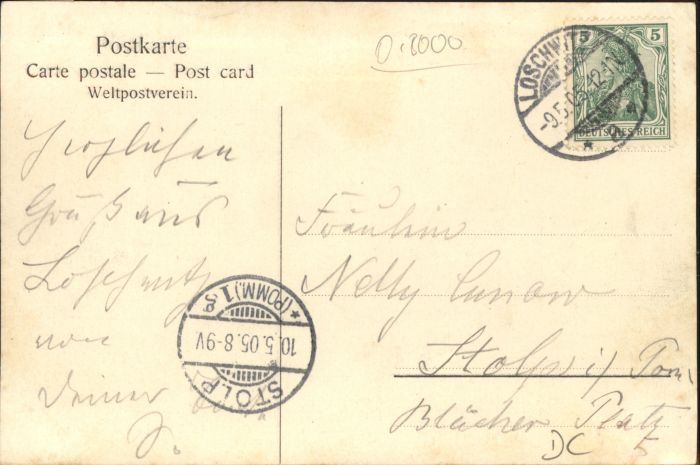 Postkarte
Carte postale — Post card
Weltpostverein.
0.2000
LOSCHWITZ
-9.5.05.12-1N
* a *
5 5
DEUTSCHES REICH
Herzlichen
Gruß aus
Loschwitz
von
Deiner
Fräulein
Nelly Cunow
Stolp i/ Pom
Blücher Platz
5
STOLP
10.5.05.8-9V
* (POMM.) 1
DC